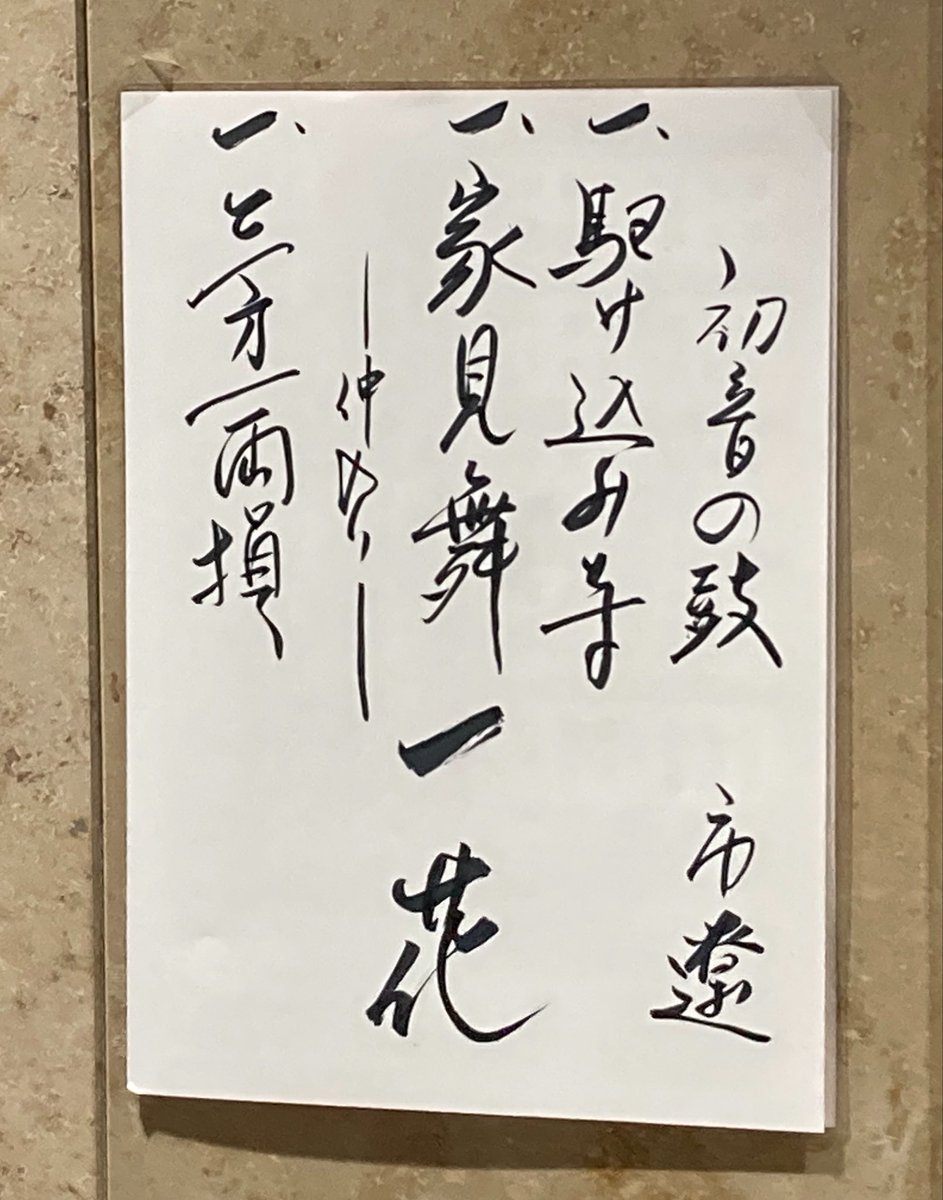 初音の鼓 市遼
一、駆け込み寺
一、家見舞
一花
―仲入り―
一、三方一両損